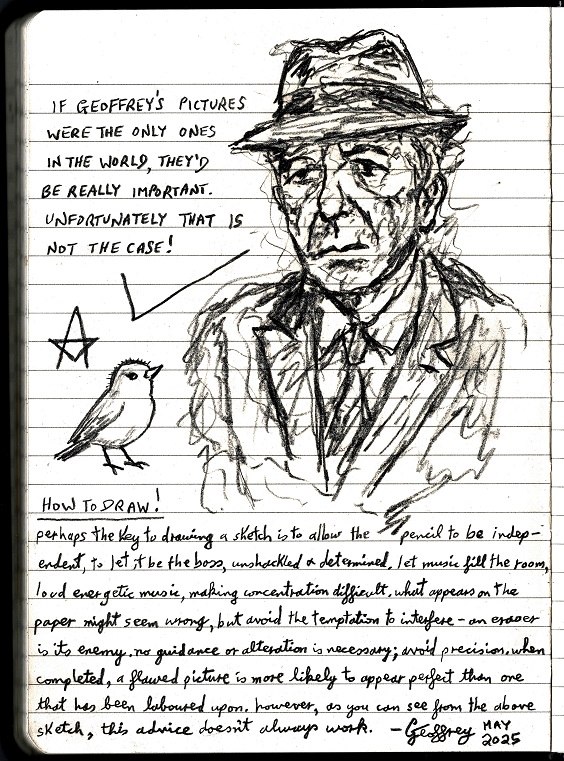 IF GEOFFREY'S PICTURES
WERE THE ONLY ONES
IN THE WORLD, THEY'D
BE REALLY IMPORTANT.
UNFORTUNATELY THAT IS
NOT THE CASE!
HOW TO DRAW!
perhaps the key to drawing a sketch is to allow the pencil to be indep-
endent, to let it be the boss, unshackled & determined, let music fill the room,
loud energetic music, making concentration difficult. what appears on the
paper might seem wrong, but avoid the temptation to interfere - an eraser
is its enemy. no guidance or alteration is necessary; avoid precision. when
completed, a flawed picture is more likely to appear perfect than one
that has been laboured upon. however, as you can see from the above
sketch, this advice doesn't always work. - Geoffrey MAY
2025